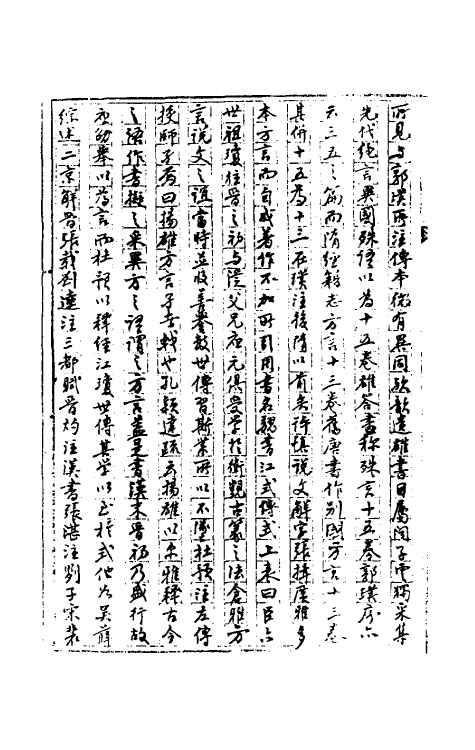 所見与郭璞所注傳本微有異同歟歆遺雄書曰屬聞子雲獨采集
先代絕言異國殊語以為十五卷雄答書称殊言十五卷郭璞序亦
云三五之篇而隋經籍志方言十三卷舊唐書作別國方言十三卷
其併十五為十三在璞注後隋以前矣許慎說文解字張揖廣雅多
本方言而自成著作不加所引用書名魏書江式傳式上表曰臣六
世祖瓊往晉之初与從父兄應元俱受学於衛覬古篆之法倉雅方
言説文之誼當時並收善譽數世傳習斯業所以不墜杜預注左傳
授師孑焉曰揚雄方言孑者戟也孔穎達疏云揚雄以尔雅釋古今
之語作書擬之采異方之語謂之方言蓋是書漢末晉初乃盛行故
應劭舉以為言而杜預以釋經江瓊世傳其学以至於式他如吳薛
綜述二京解晉張載劉逵注三都賦晉灼注漢書張湛注列子宋裴